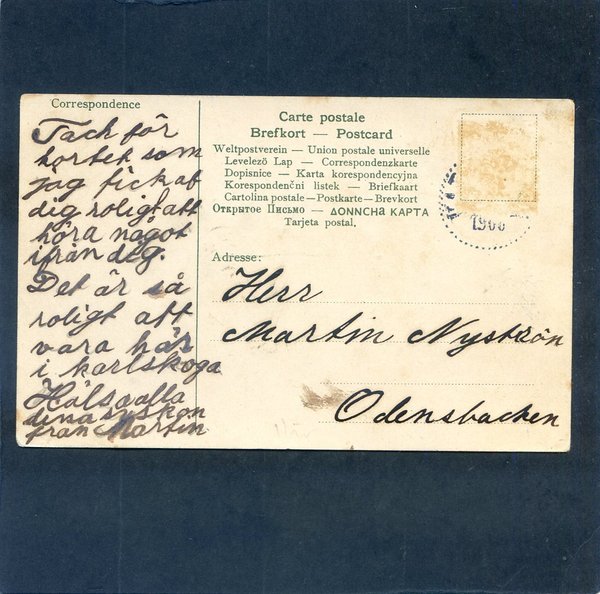 Correspondence
Tack för
kortet som
jag fick af
dig roligt att
höra något
ifrån dig.
Det är så
roligt att
vara här
i karlskoga
Hälsa alla
dina syskon
från Martin
Carte postale
Brefkort — Postcard
Weltpostverein — Union postale universelle
Levelező Lap — Correspondenzkarte
Dopisnice — Karta korespondencyjna
Korespondenční listek — Briefkaart
Cartolina postale — Postkarte — Brevkort
Открытое Письмо — ΔΟΝΝCHA KAPTA
Tarjeta postal.
Adresse:
Herr
Martin Nyström
Odensbacken